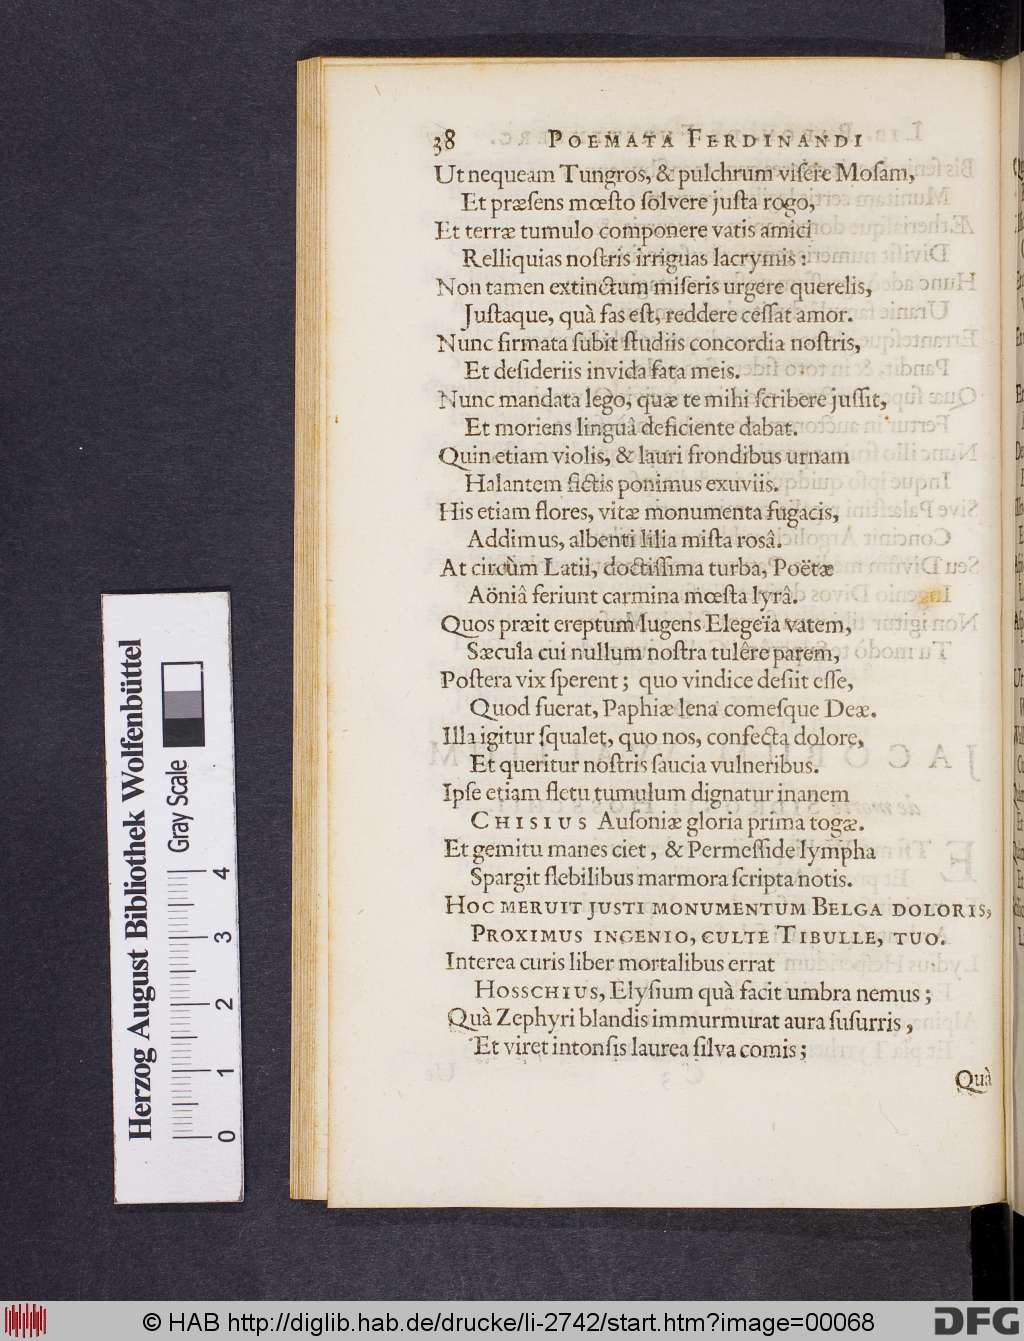 38 POEMATA FERDINANDI
Ut nequeam Tungros, & pulchrum viſere Moſam,
Et præſens mœſto ſolvere juſta rogo,
Et terræ tumulo componere vatis amici
Relliquias noſtris irriguas lacrymis:
Non tamen extinctum miſeris urgere querelis,
Juſtaque, quà fas eſt, reddere ceſſat amor.
Nunc firmata ſubit ſtudiis concordia noſtris,
Et deſideriis invida fata meis.
Nunc mandata lego, quæ te mihi ſcribere juſſit,
Et moriens linguâ deficiente dabat.
Quin etiam violis, & lauri frondibus urnam
Halantem fictis ponimus exuviis.
His etiam flores, vitæ monumenta fugacis,
Addimus, albenti lilia miſta roſâ.
At circùm Latii, doctiſſima turba, Poëtæ
Aöniâ feriunt carmina mœſta lyrâ.
Quos præit ereptum lugens Elegeïa vatem,
Sæcula cui nullum noſtra tulêre parem,
Poſtera vix ſperent; quo vindice deſiit eſſe,
Quod fuerat, Paphiæ lena comeſque Deæ.
Illa igitur ſqualet, quo nos, confecta dolore,
Et queritur noſtris ſaucia vulneribus.
Ipſe etiam fletu tumulum dignatur inanem
CHISIUS Auſoniæ gloria prima togæ.
Et gemitu manes ciet, & Permeſſide lympha
Spargit flebilibus marmora ſcripta notis.
HOC MERUIT JUSTI MONUMENTUM BELGA DOLORIS,
PROXIMUS INGENIO, CULTE TIBULLE, TUO.
Interea curis liber mortalibus errat
HOSSCHIUS, Elyſium quà facit umbra nemus;
Quà Zephyri blandis immurmurat aura ſuſurris,
Et viret intonſis laurea ſilva comis;
Quà
Herzog August Bibliothek Wolfenbüttel
Gray Scale
0 1 2 3 4
© HAB http://diglib.hab.de/drucke/li-2742/start.htm?image=00068
DFG